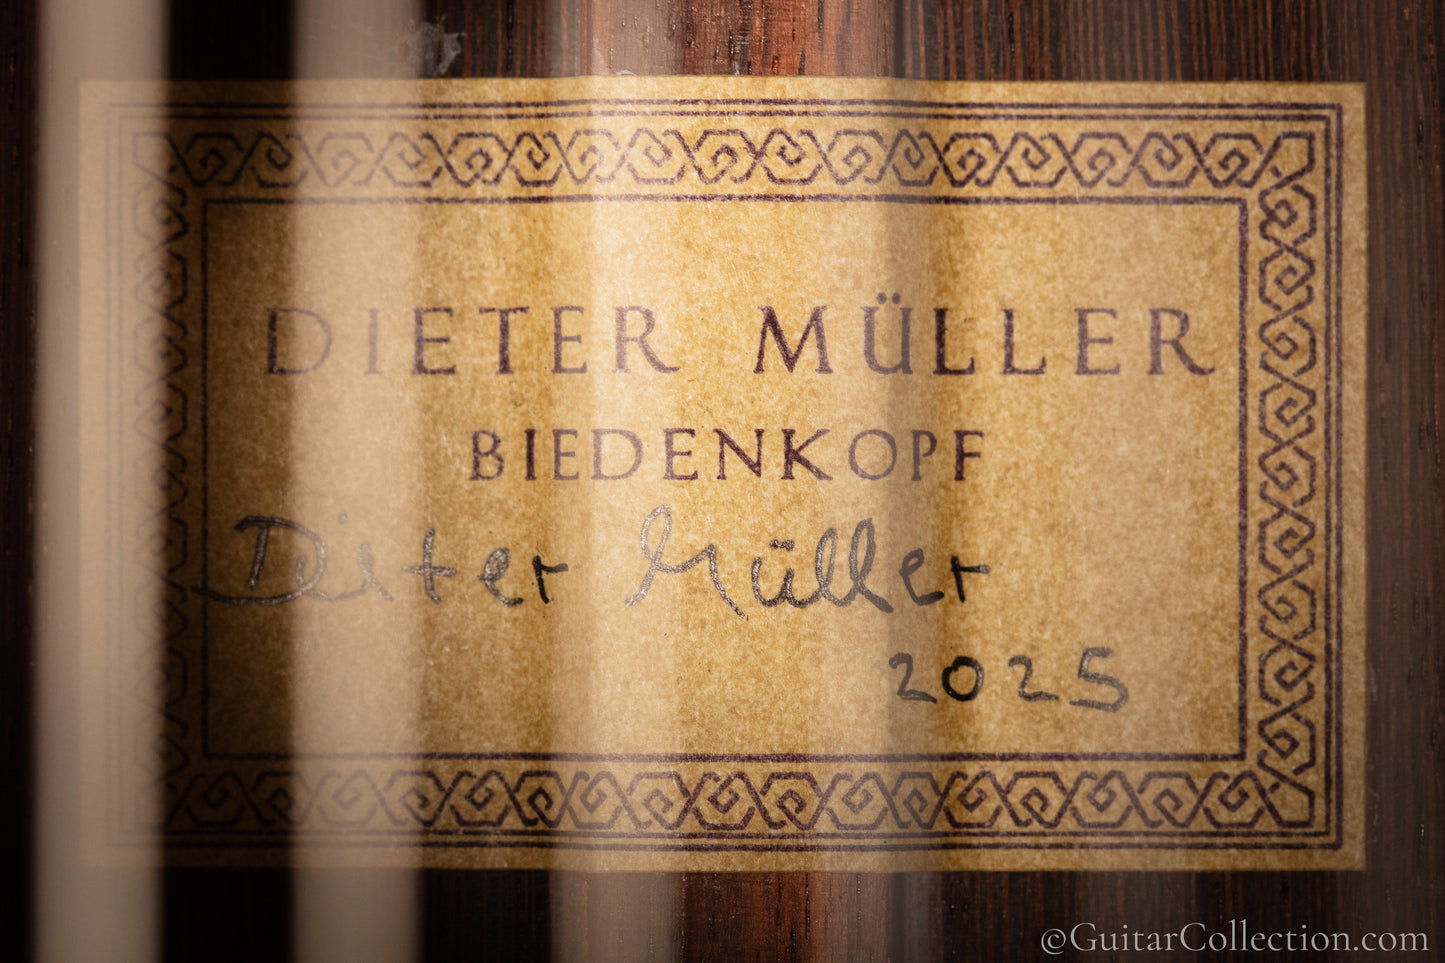 DIETER MÜLLER
BIEDENKOPF
Dieter Müller
2025
©GuitarCollection.com